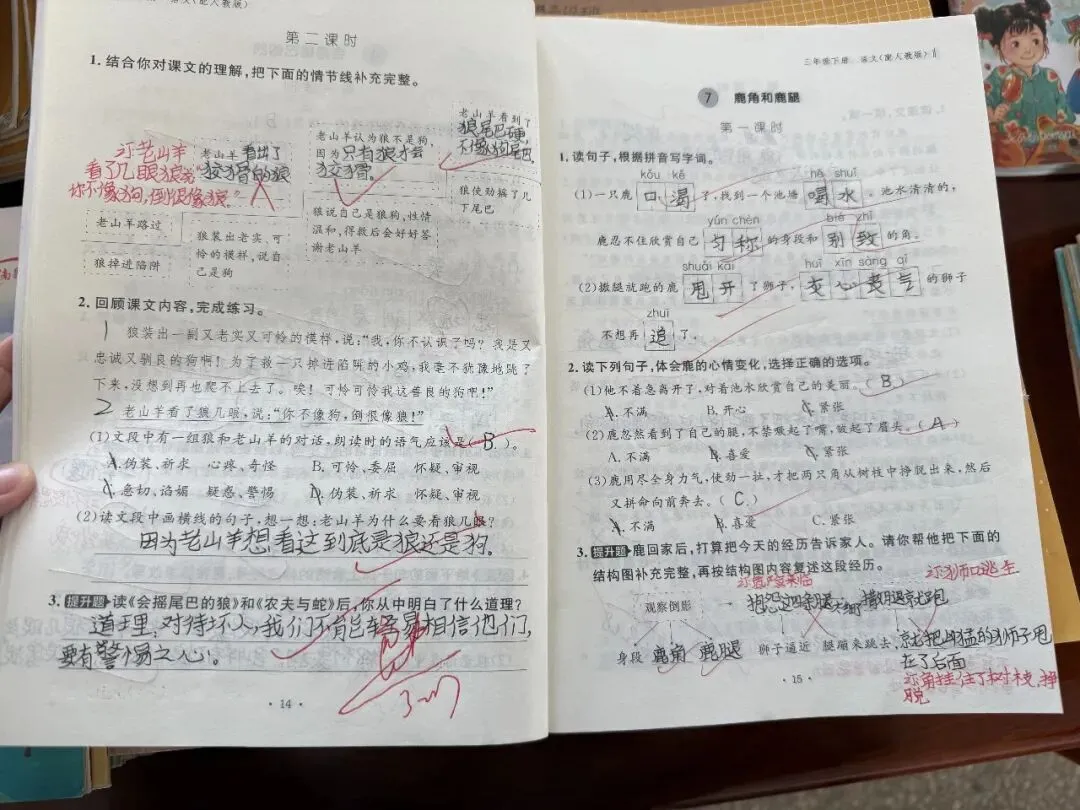 语文(配人教版)
第二课时
1. 结合你对课文的理解,把下面的情节线补充完整。
老山羊看到了
狼尾巴硬,
不像狗尾巴,
老山羊认为狼不是狗,
因为只有狼才会
狡猾。
老山羊看出了
狡猾的狼
订老山羊
看了几眼狼说"
你不像狗,倒很像狼。"
狼使劲摇了几
下尾巴
狼说自己是狼狗,性情
温和,得救后会好好答
谢老山羊
老山羊路过
狼装出老实、可
怜的模样,说自
己是狗
狼掉进陷阱
2. 回顾课文内容,完成练习。
1 狼装出一副又老实又可怜的模样,说:"我,你不认识了吗?我是又
忠诚又驯良的狗啊!为了救一只掉进陷阱的小鸡,我毫不犹豫地跳了
下来,没想到再也爬不上去了。唉!可怜可怜我这善良的狗吧!"
2 老山羊看了狼几眼,说:"你不像狗,倒很像狼!"
(1)文段中有一组狼和老山羊的对话,朗读时的语气应该是( B )。
A. 伪装、祈求 心疼、奇怪 B. 可怜、委屈 怀疑、审视
C. 急切、谄媚 疑惑、警惕 D. 伪装、祈求 怀疑、审视
(2)读文段中画横线的句子,想一想:老山羊为什么要看狼几眼?
因为老山羊想看这到底是狼还是狗。
3. 提升题 读《会摇尾巴的狼》和《农夫与蛇》后,你从中明白了什么道理?
道理:对待坏人,我们不能轻易相信他们,
要有警惕之心。
· 14 ·
三年级下册 语文(配人教版)
7 鹿角和鹿腿
第一课时
1. 读句子,根据拼音写字词。
kǒu kě hē shuǐ
(1)一只鹿 口渴 了,找到一个池塘 喝水 。池水清清的,
yún chèn bié zhì
鹿忍不住欣赏自己 匀称 的身段和 别致 的角。
shuǎi kāi huī xīn sàng qì
(2)撒腿就跑的鹿 甩开 了狮子,灰心丧气 的狮子
zhuī
不想再 追 了。
2. 读下列句子,体会鹿的心情变化,选择正确的选项。
(1)他不着急离开了,对着池水欣赏自己的美丽。( B )
A. 不满 B. 开心 C. 紧张
(2)鹿忽然看到了自己的腿,不禁噘起了嘴,皱起了眉头。( A )
A. 不满 B. 喜爱 C. 紧张
(3)鹿用尽全身力气,使劲一扯,才把两只角从树枝中挣脱出来,然后
又拼命向前奔去。( C )
A. 不满 B. 喜爱 C. 紧张
3. 提升题 鹿回家后,打算把今天的经历告诉家人。请你帮他把下面的
结构图补充完整,再按结构图内容复述这段经历。
订狮口逃生
观察倒影 → 抱怨四条腿 太细 撒腿就跑
身段 鹿角 鹿腿 狮子逼近 腿蹦来跳去,就把凶猛的狮子甩
在了后面
订角挂住了树枝,挣
脱
· 15 ·